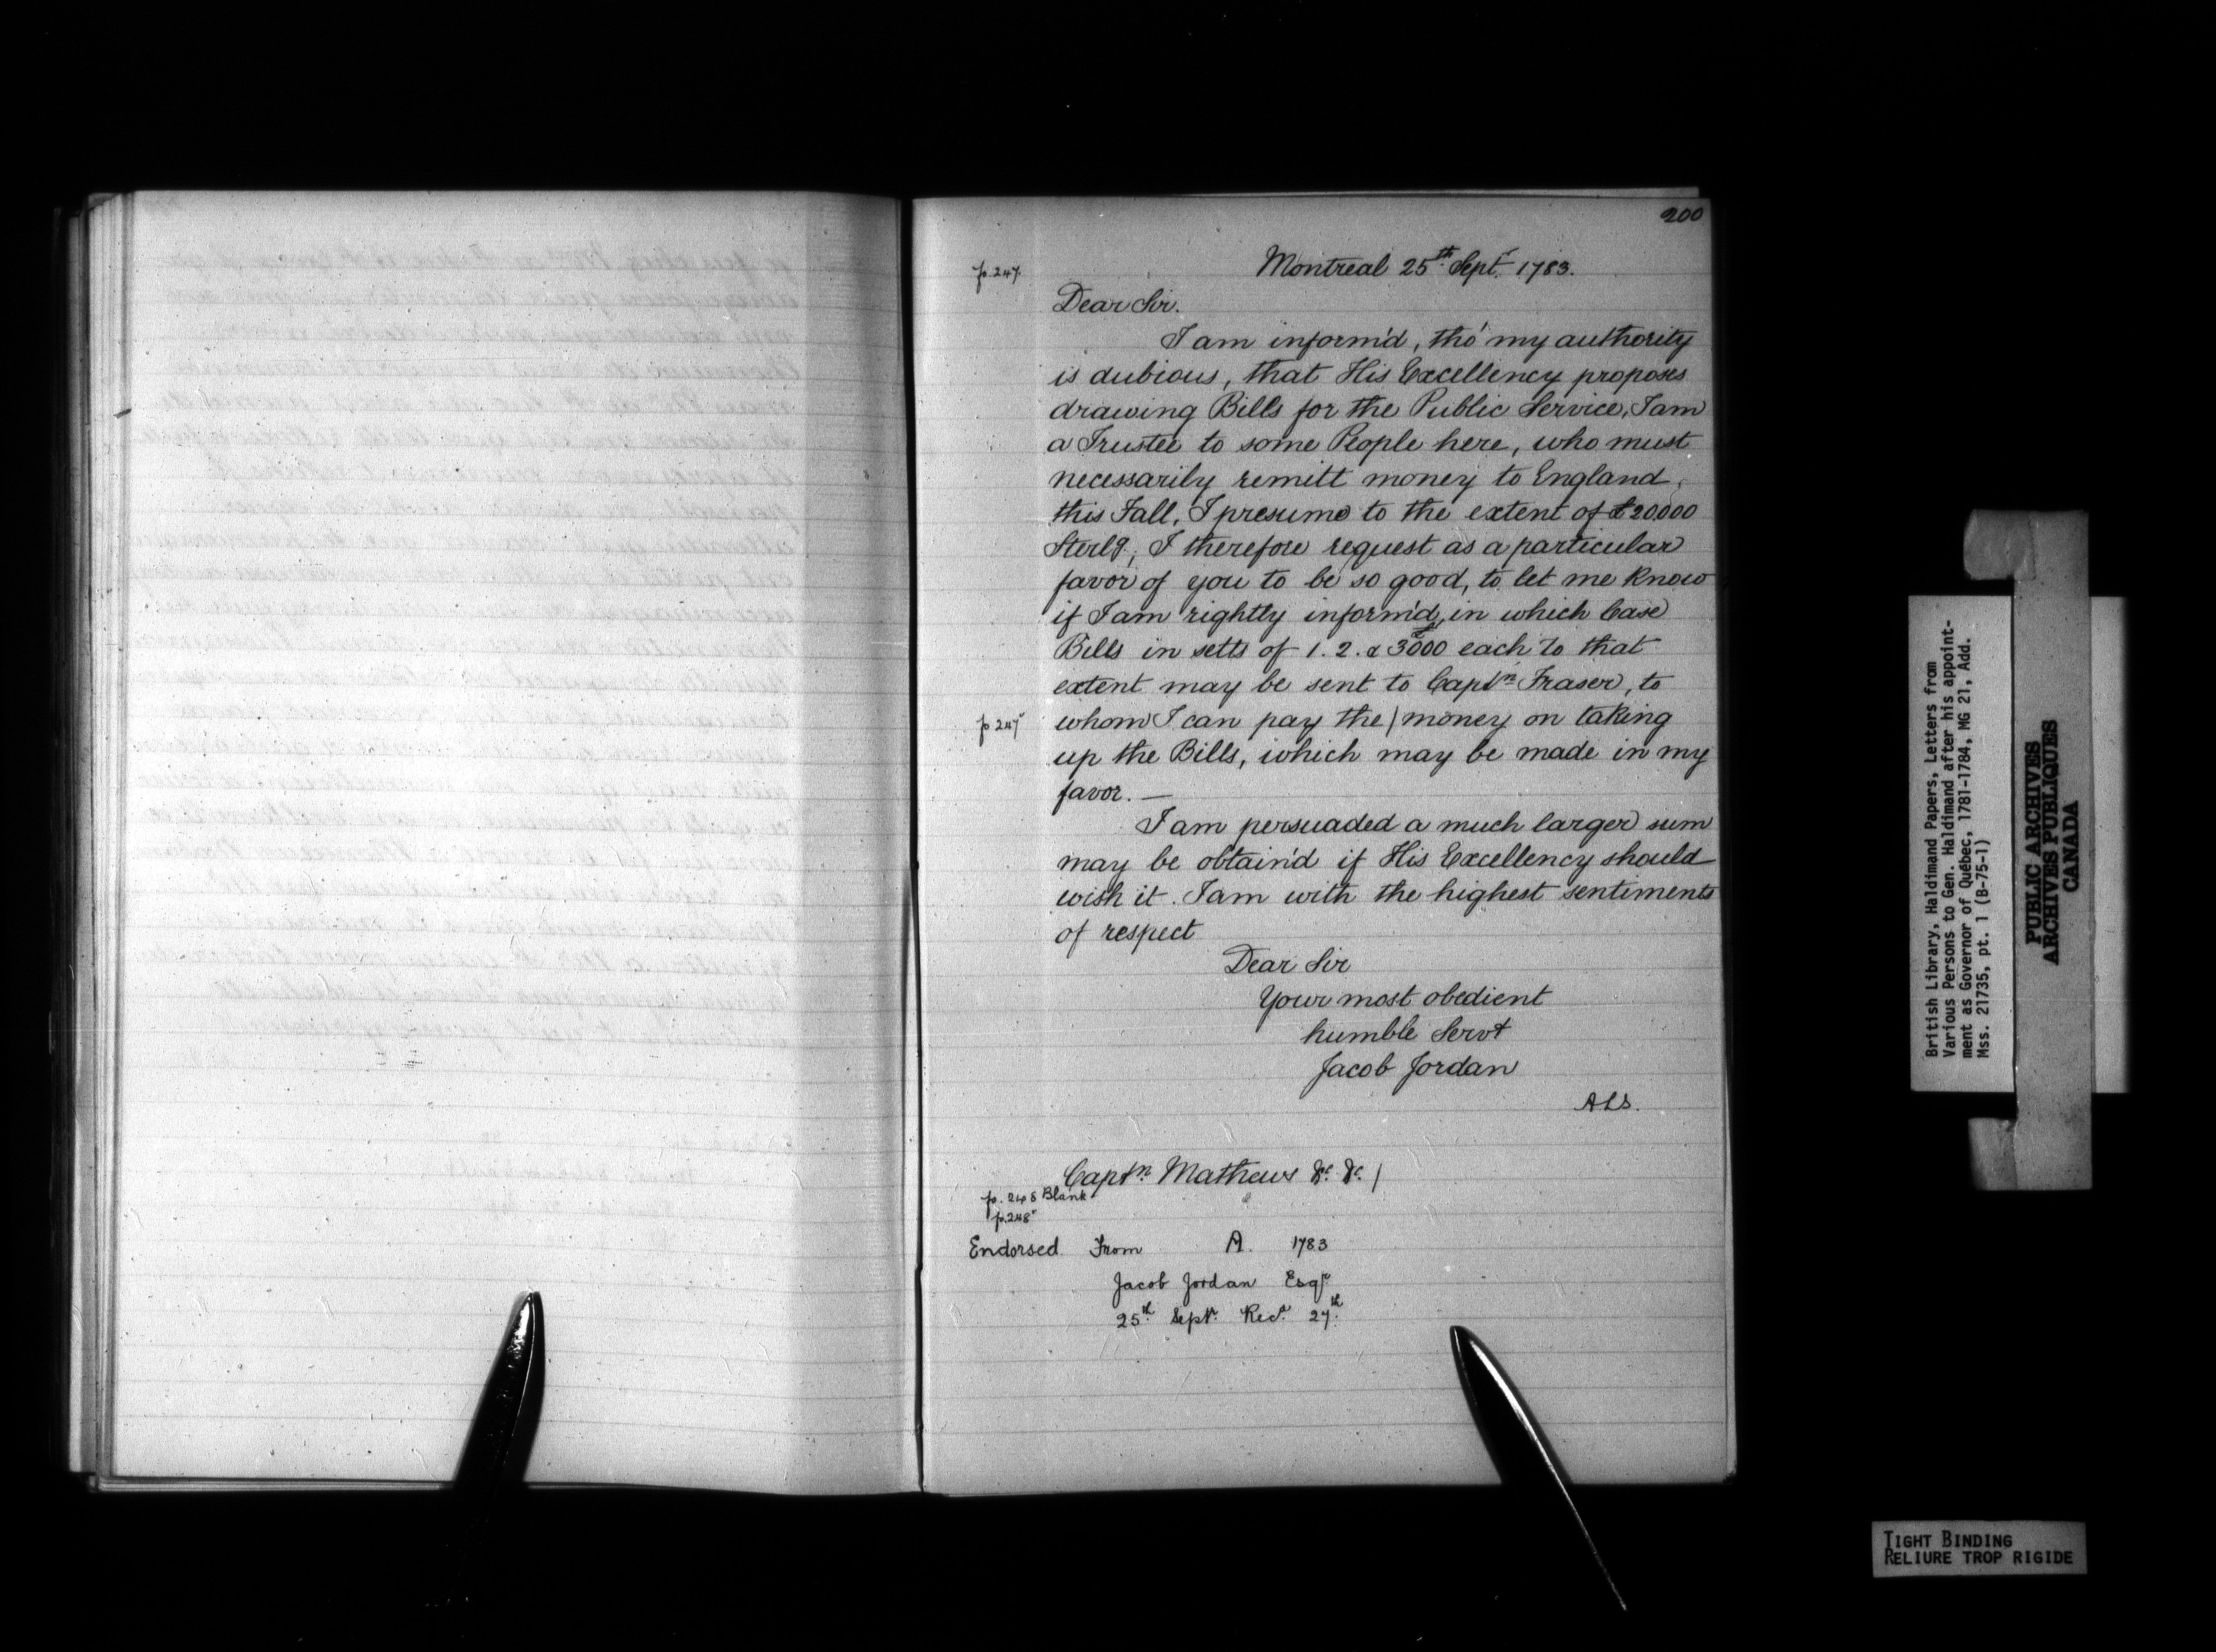 200
p. 247.
Montreal 25th Septr 1783.
Dear Sir.
I am inform'd, tho' my authority
is dubious, that His Excellency proposes
drawing Bills for the Public Service, I am
a Trustee to some People here, who must
necessarily remitt money to England,
this Fall, I presume to the extent of £20,000
Sterlg; I therefore request as a particular
favor of you to be so good, to let me know
if I am rightly inform'd, in which Case
Bills in setts of 1. 2. & £3000 each to that
extent may be sent to Captn Fraser, to
p 247v
whom I can pay the / money on taking
up the Bills, which may be made in my
favor. —
I am persuaded a much larger sum
may be obtain'd if His Excellency should
wish it. I am with the highest sentiments
of respect
Dear Sir
Your most obedient
humble Servt
Jacob Jordan
ALS.
Captn Mathews &c. &c. /
p. 248 Blank
p. 248v
Endorsed From A. 1783
Jacob Jordan Esqr
25th Septr Recd 27th
British Library, Haldimand Papers, Letters from
Various Persons to Gen. Haldimand after his appoint-
ment as Governor of Québec, 1781-1784, MG 21, Add.
Mss. 21735, pt. 1 (B-75-1)
PUBLIC ARCHIVES
ARCHIVES PUBLIQUES
CANADA
TIGHT BINDING
RELIURE TROP RIGIDE